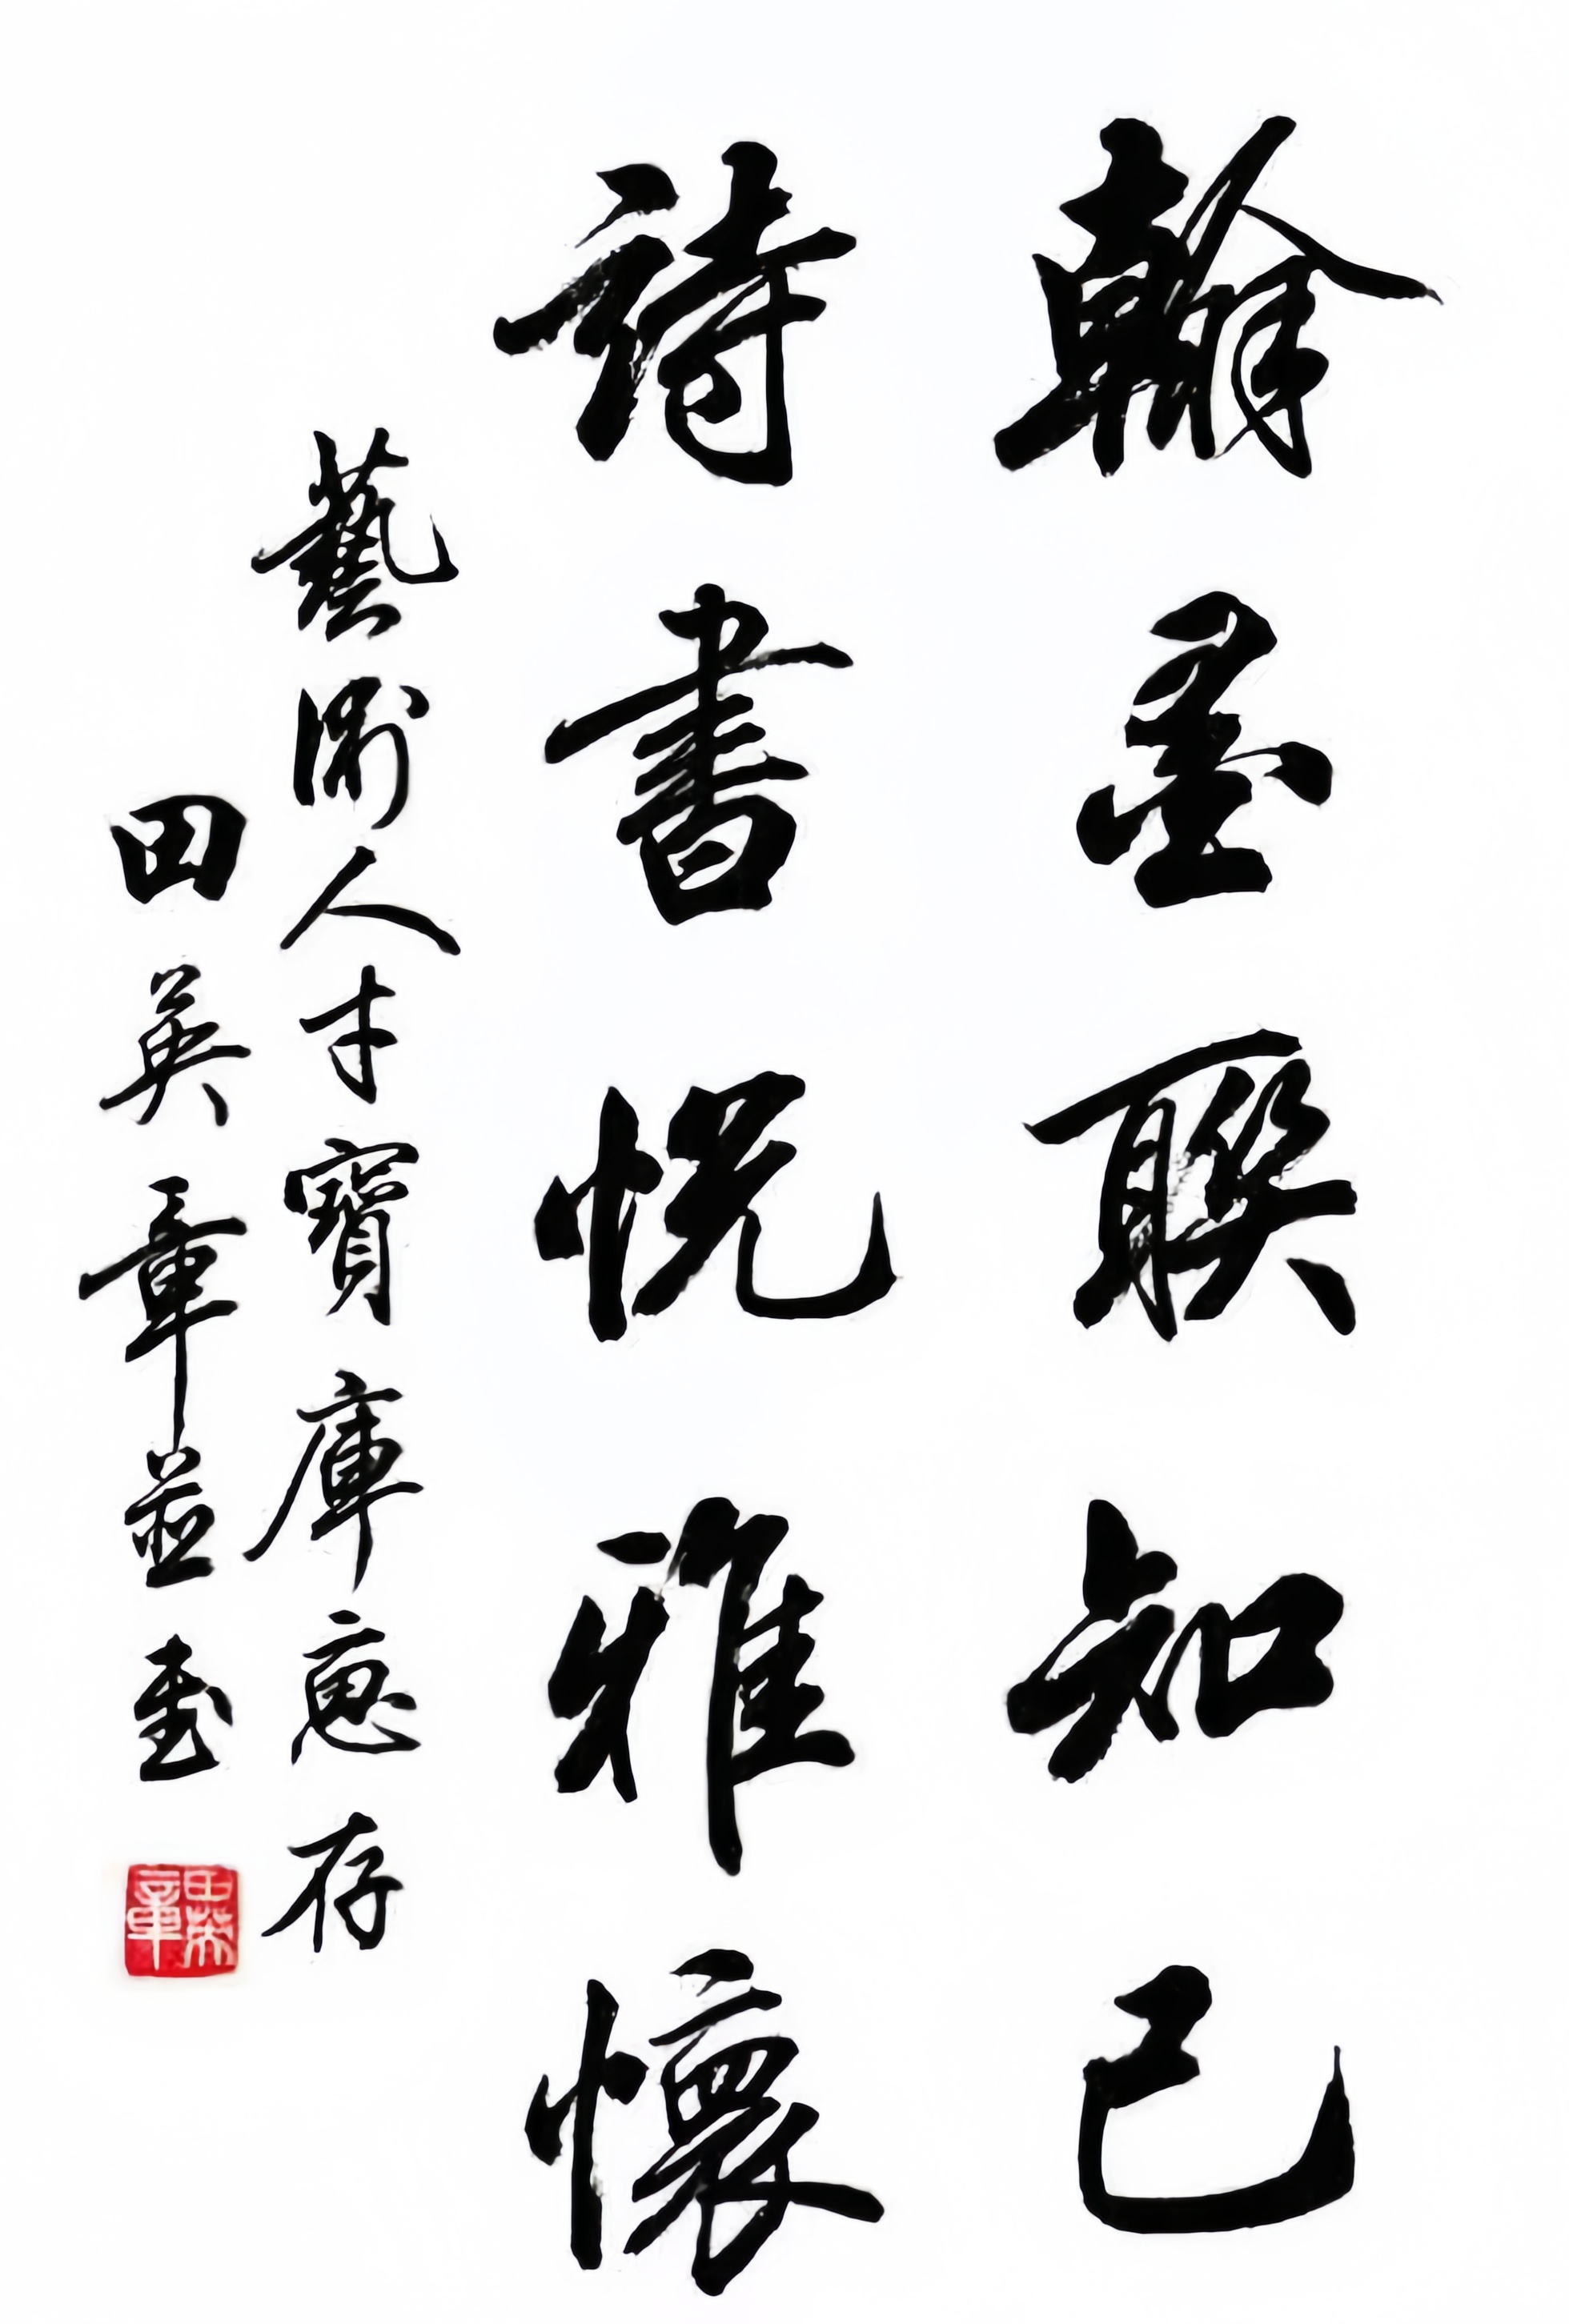 翰墨聯知己
詩書悅雅懷
藝術人才寶庫惠存
田英章並書
田英章